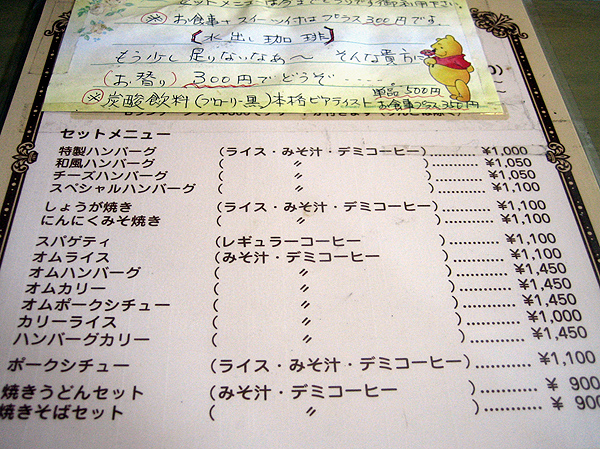 セットメニューは
※お食事+スイーツ付はプラス300円です。
［水出し珈琲］
もう少し足りないなあ〜 そんな貴方に
(お替り) 300円でどうぞ・・・・・
※炭酸飲料(ブローリー黒)本格ビアテイスト 単品500円 お食事プラス350円
セットメニュー
特製ハンバーグ (ライス・みそ汁・デミコーヒー).......... ¥1,000
和風ハンバーグ ( 〃 ).......... ¥1,050
チーズハンバーグ ( 〃 ).......... ¥1,050
スペシャルハンバーグ ( 〃 ).......... ¥1,100
しょうが焼き (ライス・みそ汁・デミコーヒー).......... ¥1,100
にんにくみそ焼き ( 〃 ).......... ¥1,100
スパゲティ (レギュラーコーヒー ).......... ¥1,100
オムライス (みそ汁・デミコーヒー ).......... ¥1,100
オムハンバーグ ( 〃 ).......... ¥1,450
オムカリー ( 〃 ).......... ¥1,450
オムポークシチュー ( 〃 ).......... ¥1,450
カリーライス ( 〃 ).......... ¥1,000
ハンバーグカリー ( 〃 ).......... ¥1,450
ポークシチュー (ライス・みそ汁・デミコーヒー).......... ¥1,100
焼きうどんセット (みそ汁・デミコーヒー ).......... ¥ 900
焼きそばセット ( 〃 ).......... ¥ 900